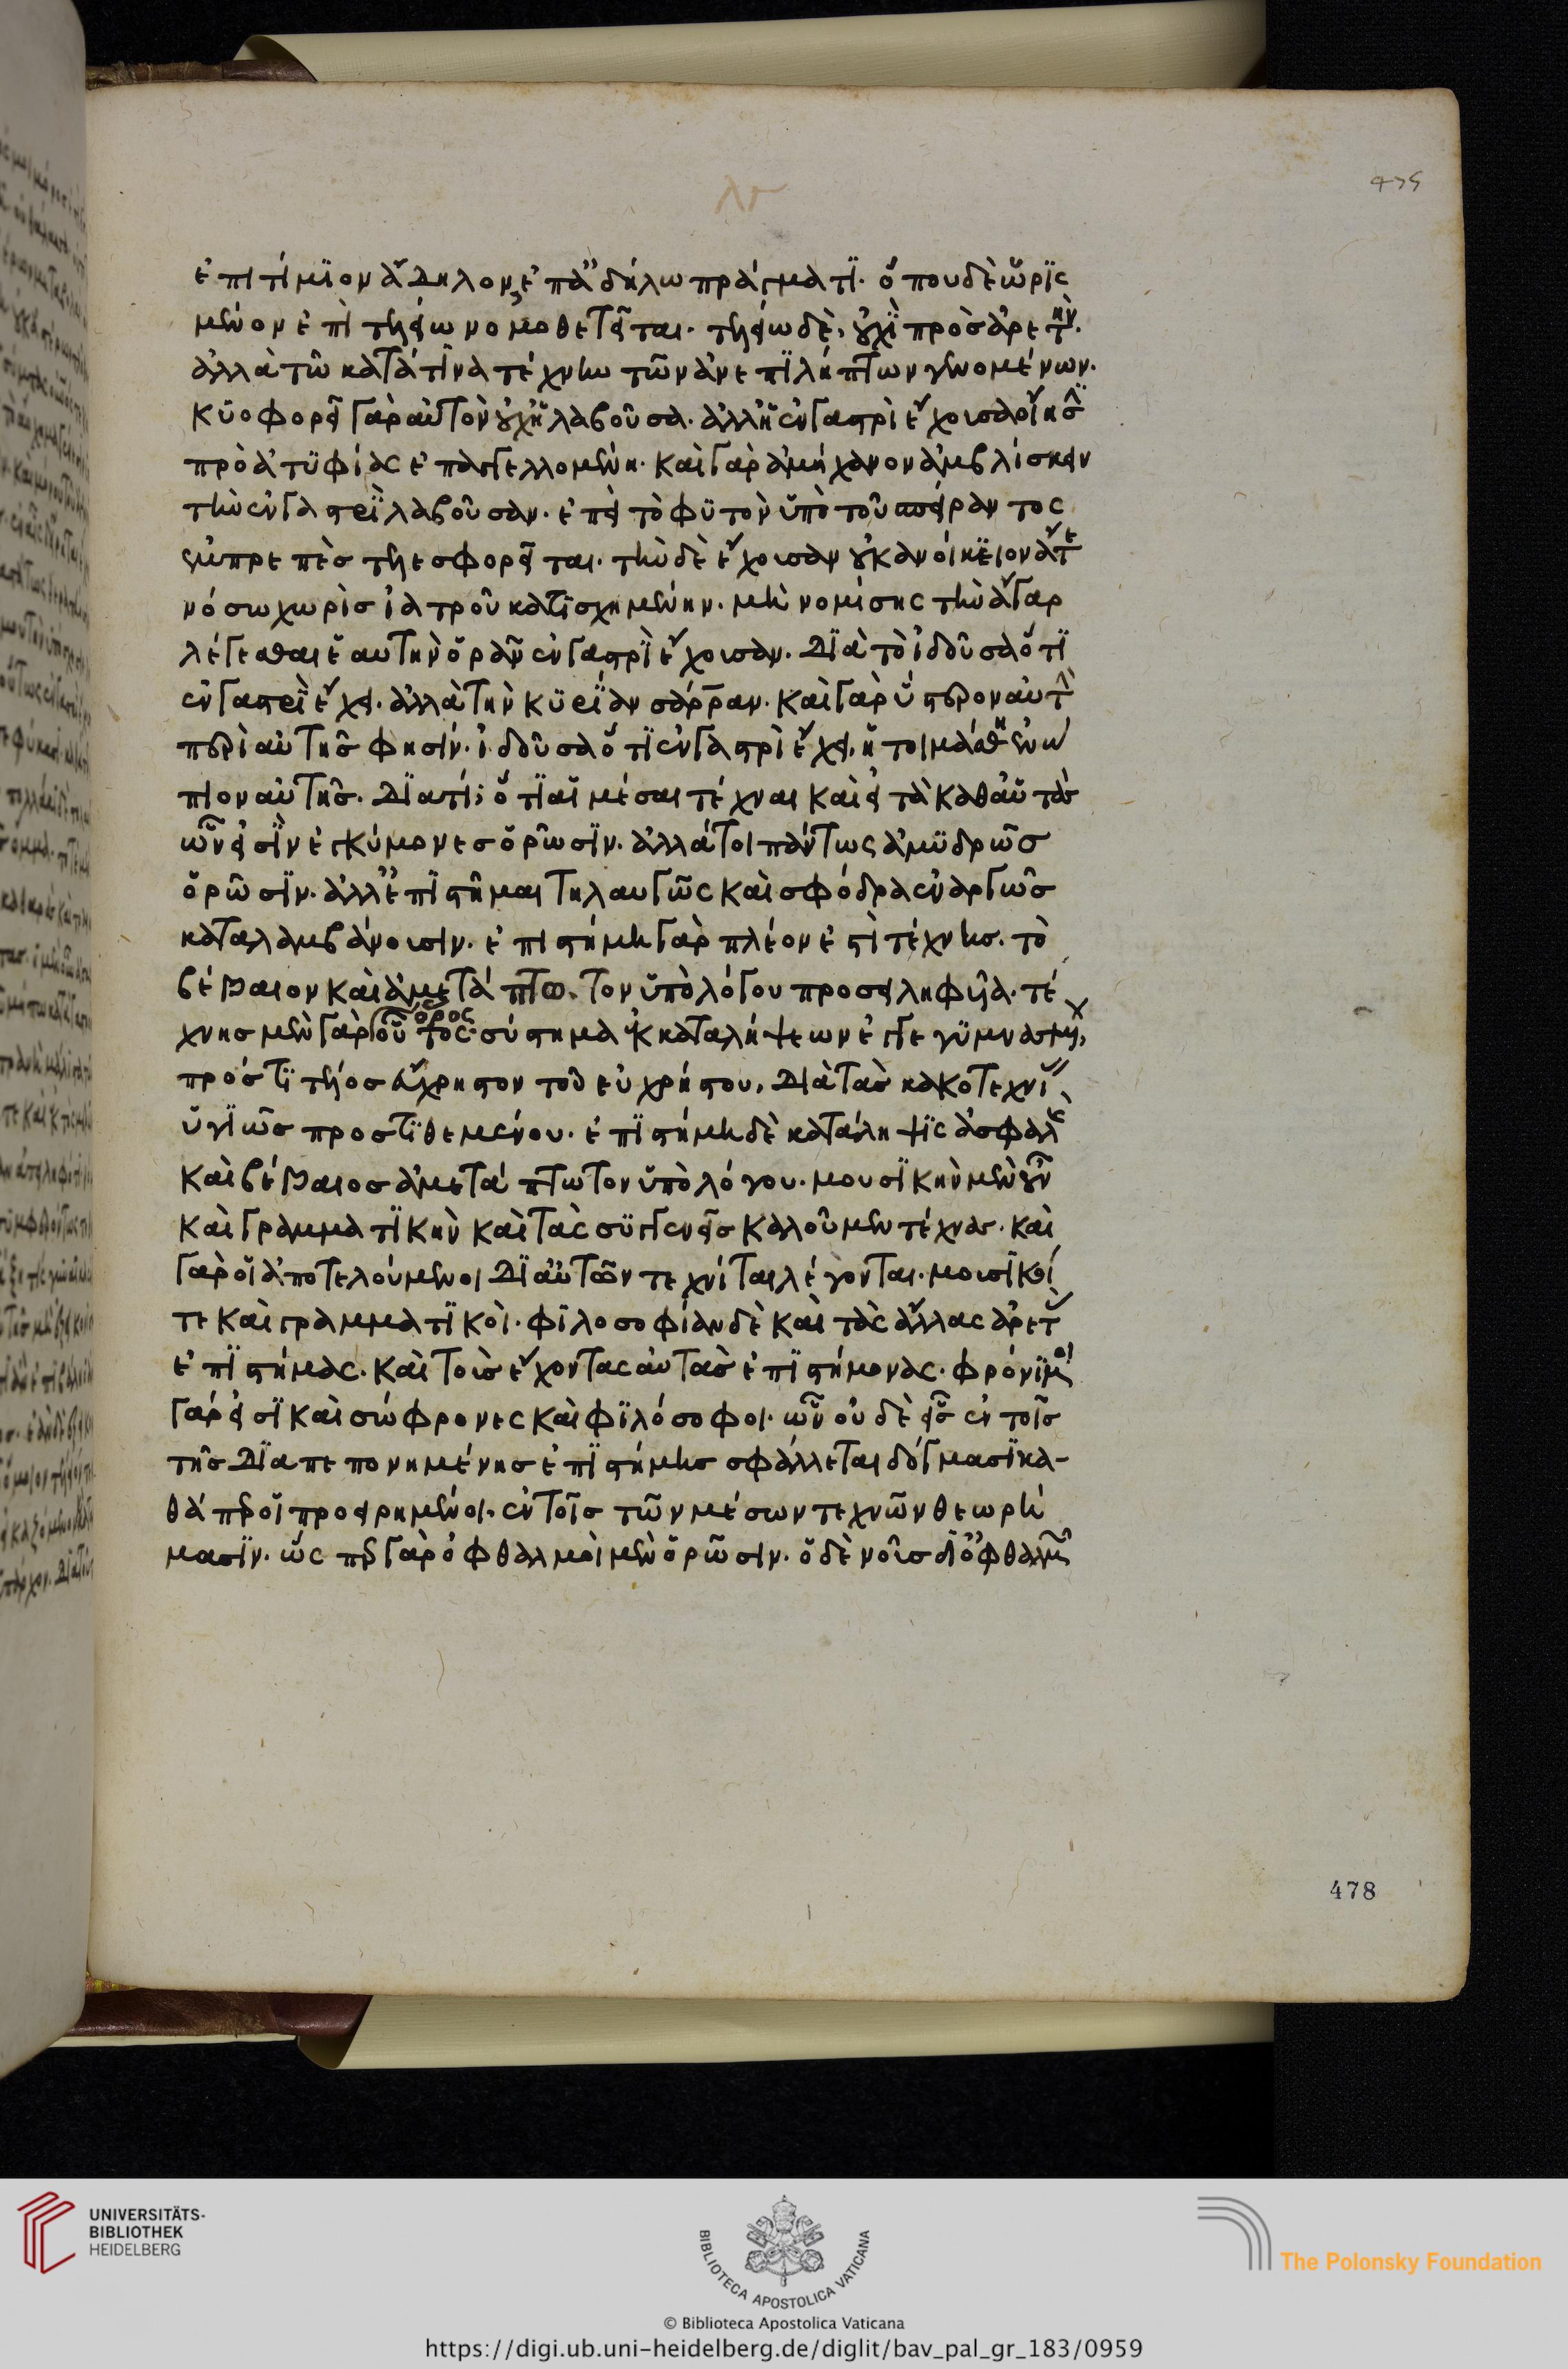 ἐπιτίμϊον ἄδηλον, ἐπ' ἀδήλω πράγματϊ. ὅπου δὲ ὡρϊς
μένον ἐπὶ τελείω νομοθετεῖται. τελείω δὲ, οὐχὶ πρὸς ἀρετήν.
ἀλλὰ τῶ κατά τινα τέχνην τῶν ἀνεπϊλήπτων γινομένων.
κϋοφορεῖ γὰρ αὐτὸν οὐχ ἡ λαβοῦσα. ἀλλ' ἡ ἐν γαστρὶ ἔχουσα οἴησϊ
πρὸ ἀτϋφίας ἐπαγγελλομένη. καὶ γὰρ ἀμήχανον ἀμβλίσκειν
τὴν ἐν γαστρὶ λαβοῦσαν. ἐπεὶ τὸ φϋτὸν ὑπὸ τοῦ σπείραντος
ἐμπρεπὲς τελεσφορεῖται. τὴν δὲ ἔχουσαν οὐκ ἀνοίκειον ἅτε
νόσω χωρὶς ἰατροῦ κατϊσχημένην. μὴ νομίσης τὴν ἄγαρ
λέγεσθαι ἑαυτὴν ὁρᾶν ἐν γαστρὶ ἔχουσαν. δϊὰ τὸ ἰδοῦσα ὅτϊ
ἐν γαστρὶ ἔχει. ἀλλὰ τὴν κϋρίαν σάρραν. καὶ γὰρ ὕστερον αὐτὴ
περὶ αὑτῆς φησίν. ἰδοῦσα ὅτϊ ἐν γαστρὶ ἔχει, ἠτοιμάσθην ἐνώ
πιον αὐτῆς. δϊατί; ὅτϊ αἱ μέσαι τέχναι καὶ εἰ τὰ καθ' αὑτὰς
ὧν εἰσὶν ἐγκύμονες ὁρῶσϊν. ἀλλά τοι πάντως ἀμϋδρῶς
ὁρῶσϊν. ἀλλ' ἐπϊστῆμαι τηλαυγῶς καὶ σφόδρα ἐναργῶς
καταλαμβάνουσιν. ἐπιστήμη γὰρ πλέον ἐστὶ τέχνης. τὸ
βέβαιον καὶ ἀμετάπτωτον ὑπὸ λόγου προσειληφυῖα. τέ
χνης μὲν γὰρ ὅρος οὗτος. σύστημα ἐκ καταλήψεων ἐγγεγϋμνασμένων
πρός τϊ τέλος εὔχρηστον τοῦ εὐχρήστου, διὰ τὰς κακοτεχνί
ὑγϊῶς προστϊθεμένου. ἐπϊστήμη δὲ κατάληψϊς ἀσφαλὴς
καὶ βέβαιος ἀμετάπτωτον ὑπὸ λόγου. μουσϊκὴν μὲν οὖν
καὶ γραμματϊκὴν καὶ τὰς σϋγγενεῖς καλοῦμεν τέχνας. καὶ
γὰρ οἱ ἀποτελούμενοι δϊ' αὐτῶν τεχνῖται λέγονται. μουσϊκοί
τε καὶ γραμματϊκοὶ. φϊλοσοφίαν δὲ καὶ τὰς ἄλλας ἀρετὰς
ἐπϊστήμας. καὶ τοὺς ἔχοντας αὐτὰς ἐπϊστήμονας. φρόνϊμοί
γάρ εἰσϊ καὶ σώφρονες καὶ φϊλόσοφοι. ὧν οὐδὲ εἷς ἐν τοῖς
τῆς δϊαπεπονημένης ἐπϊστήμης σφάλλεται δόγμασϊ κα-
θάπερ οἱ προειρημένοι. ἐν τοῖς τῶν μέσων τεχνῶν θεωρή
μασϊν. ὥσπερ γὰρ ὀφθαλμοὶ μὲν ὁρῶσιν. ὁ δὲ νοῦς δι' ὀφθαλμῶν
475
478
UNIVERSITÄTS-
BIBLIOTHEK
HEIDELBERG
BIBLIOTECA APOSTOLICA VATICANA
The Polonsky Foundation
© Biblioteca Apostolica Vaticana
https://digi.ub.uni-heidelberg.de/diglit/bav_pal_gr_183/0959